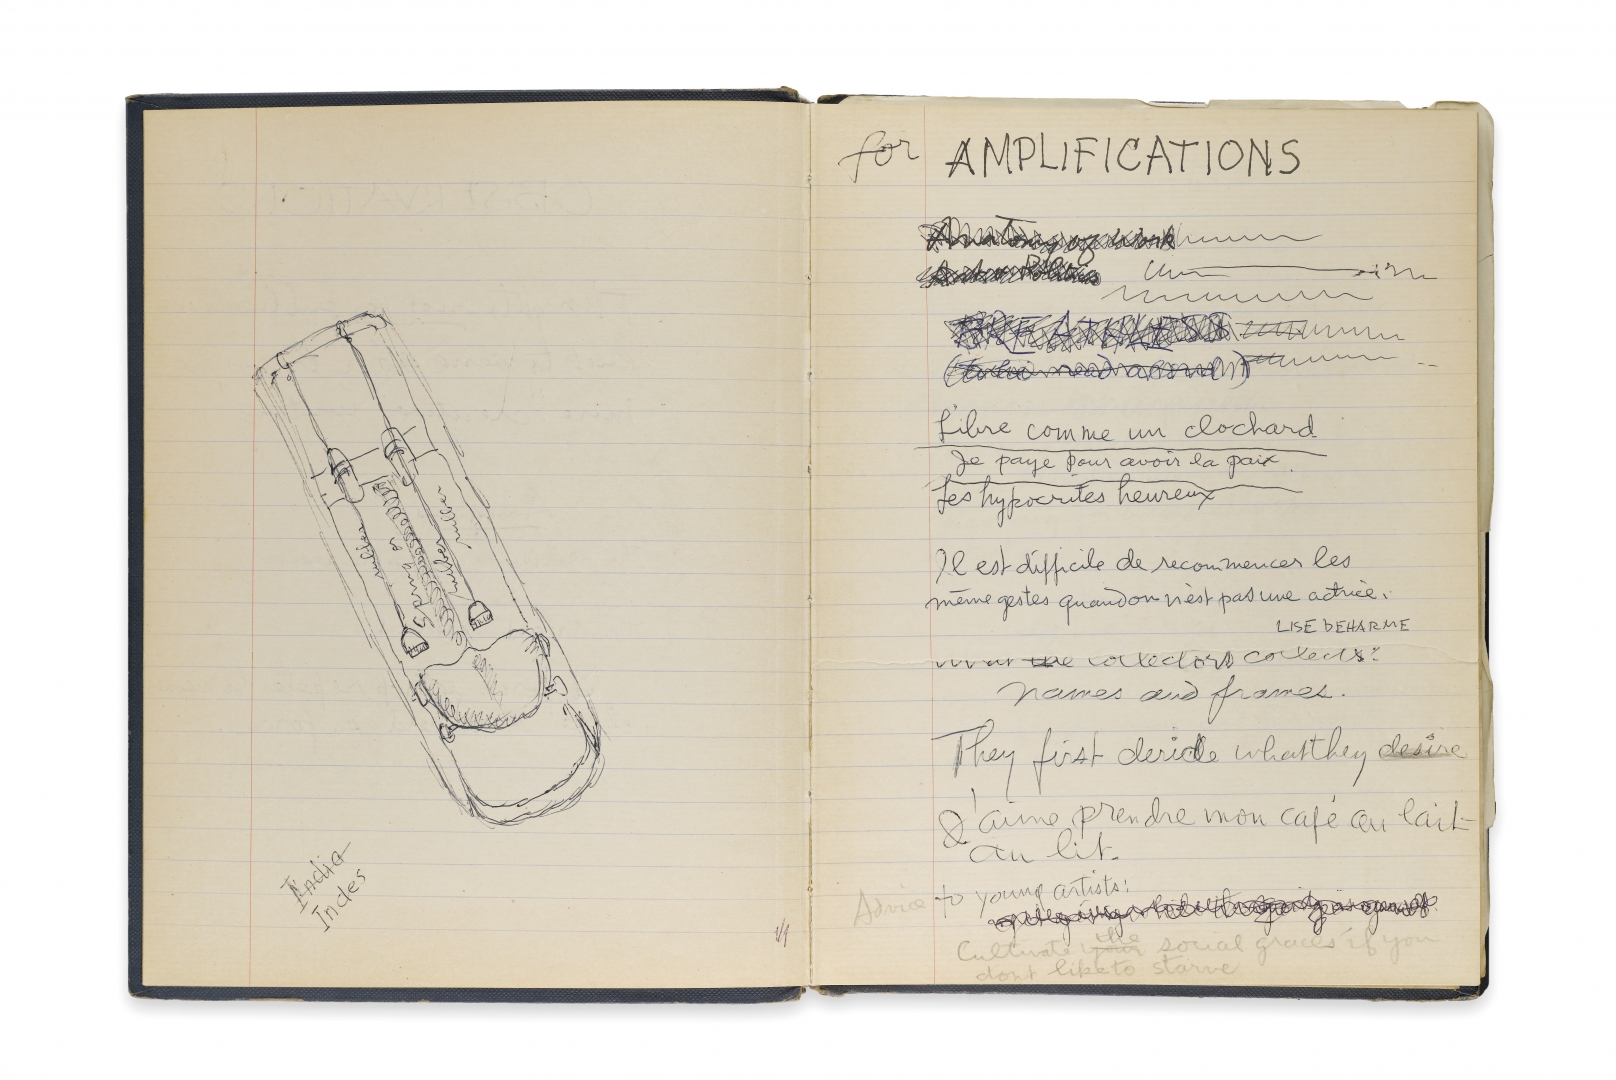 rubber
spring or
rubber
rubber
India
Indes
for AMPLIFICATIONS
Anatomy of work
BREATHLESS
(to be read aloud)
Libre comme un clochard
Je paye pour avoir la paix.
Les hypocrites heureux
Il est difficile de recommencer les
même gestes quand on n'est pas une actrice.
LISE DEHARME
What the collectors collects:
names and frames.
They first deride what they desire
J'aime prendre mon café au lait
au lit.
Advice to young artists:
Cultivate your the social graces if you
dont like to starve